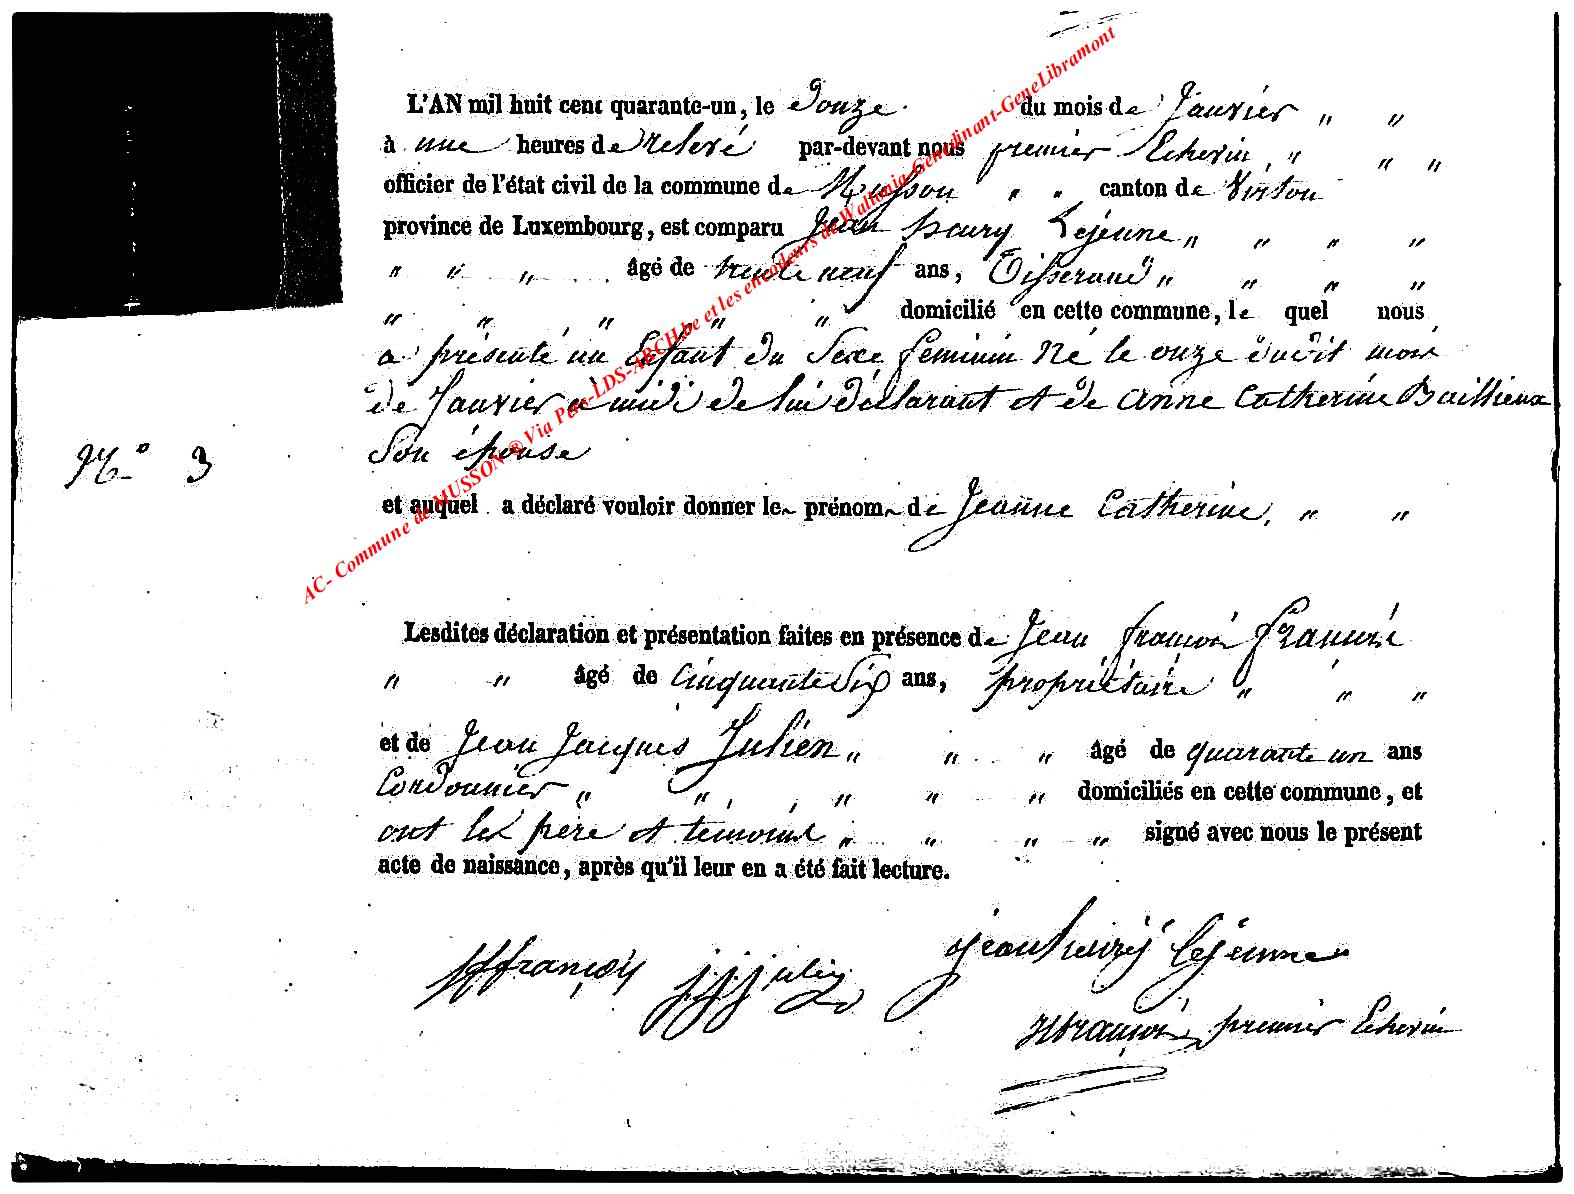 L'AN mil huit cent quarante-un, le Douze du mois de Janvier " "
à une heures de relevé par-devant nous premier Echevin, " " "
officier de l'état civil de la commune de Musson " " canton de Virton
province de Luxembourg, est comparu Jean henry Lejeune " " " "
" " " âgé de trente neuf ans, Tisserand " " " "
" " " " " domicilié en cette commune, le quel nous
a présenté un Enfant du Sexe feminin Né le onze dudit mois
de Janvier a midi de lui déclarant et de Anne Catherine Baillieux
Son épouse
N.° 3
et auquel a déclaré vouloir donner le prénom de Jeanne Catherine, " "
Lesdites déclaration et présentation faites en présence de Jean françois
" " âgé de Cinquante Six ans, propriétaire " " "
et de Jean Jacques Julien " " " âgé de quarante un ans
Cordonnier " " " " " domiciliés en cette commune, et
ont les père et témoins " " " " signé avec nous le présent
acte de naissance, après qu'il leur en a été fait lecture.
jean henry lejeune
françois jjjulien
françois, premier Echevin
AC- Commune de MUSSON ® Via Pass-LDS-ARCH.be et les encodeurs de Wallonia-Genedinant-GeneLibramont